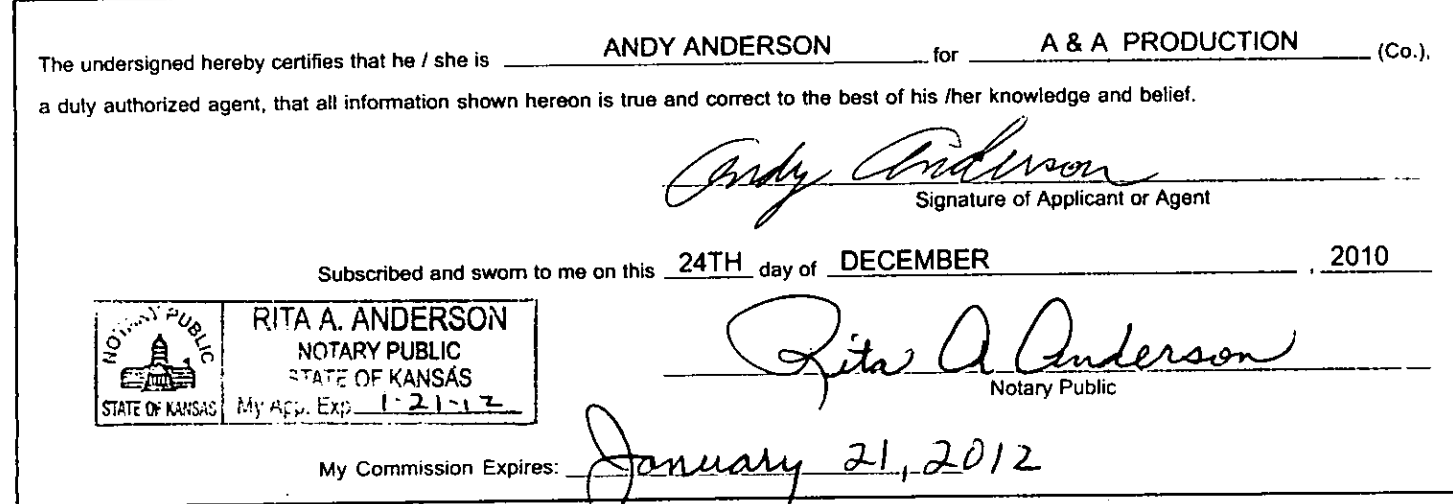 The undersigned hereby certifies that he / she is ANDY ANDERSON for A & A PRODUCTION (Co.),
a duly authorized agent, that all information shown hereon is true and correct to the best of his /her knowledge and belief.
Andy Anderson
Signature of Applicant or Agent
Subscribed and sworn to me on this 24TH day of DECEMBER , 2010
NOTARY PUBLIC
STATE OF KANSAS
RITA A. ANDERSON
NOTARY PUBLIC
STATE OF KANSAS
My App. Exp. 1-21-12
Rita A Anderson
Notary Public
My Commission Expires: January 21, 2012